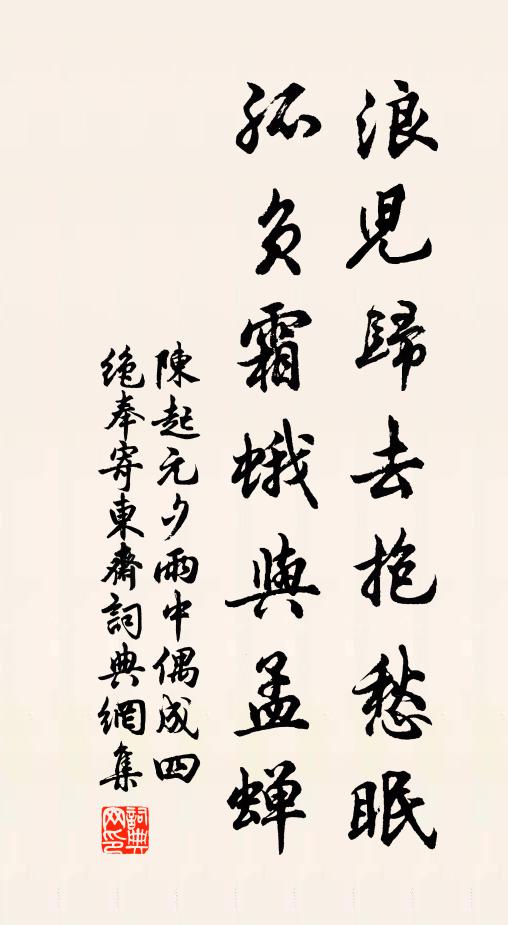 浪兒歸去抱愁眠
孤負霜蛾與孟蟬
陳起元夕雨中偶成四
絶奉寄東齋詞典網集
詞典
网印